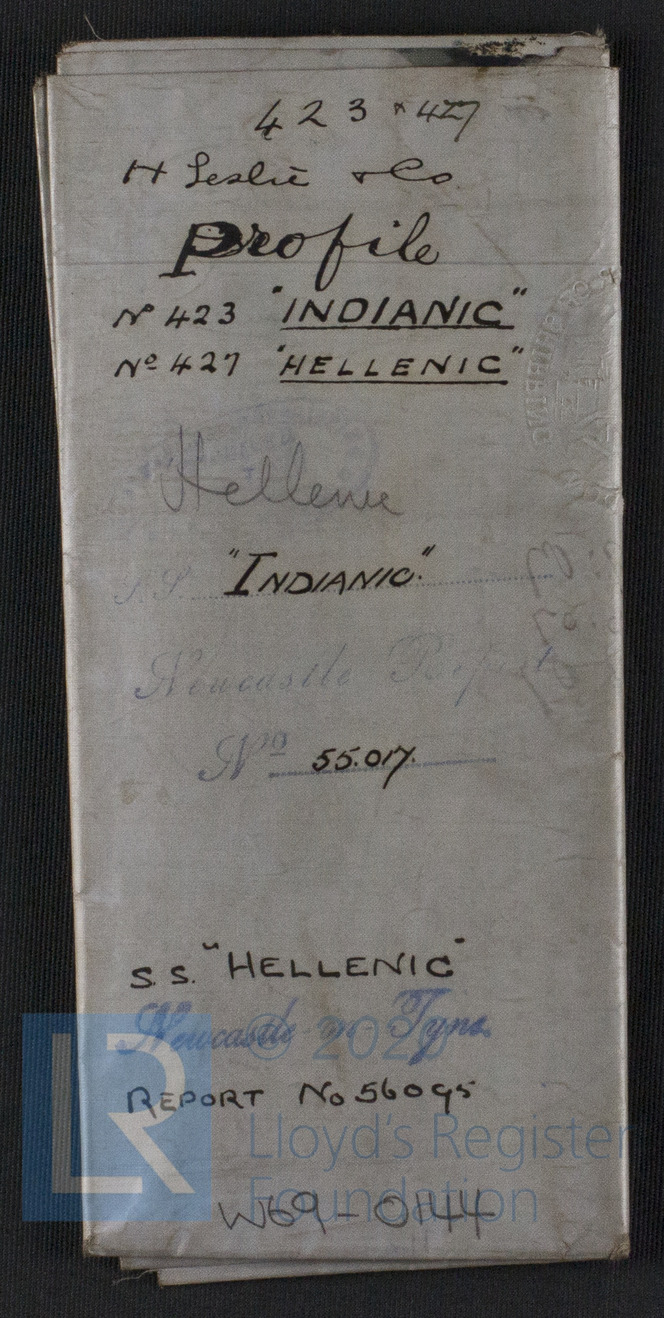 423 & 427
H Leslie & Co
Profile
No 423 "INDIANIC"
No 427 "HELLENIC"
Hellenic
S.S. "INDIANIC"
Newcastle Report
No 55.017.
S.S. "HELLENIC"
Newcastle on Tyne
REPORT No 56095
© 2020
Lloyd's Register
Foundation
LR
W69-0144